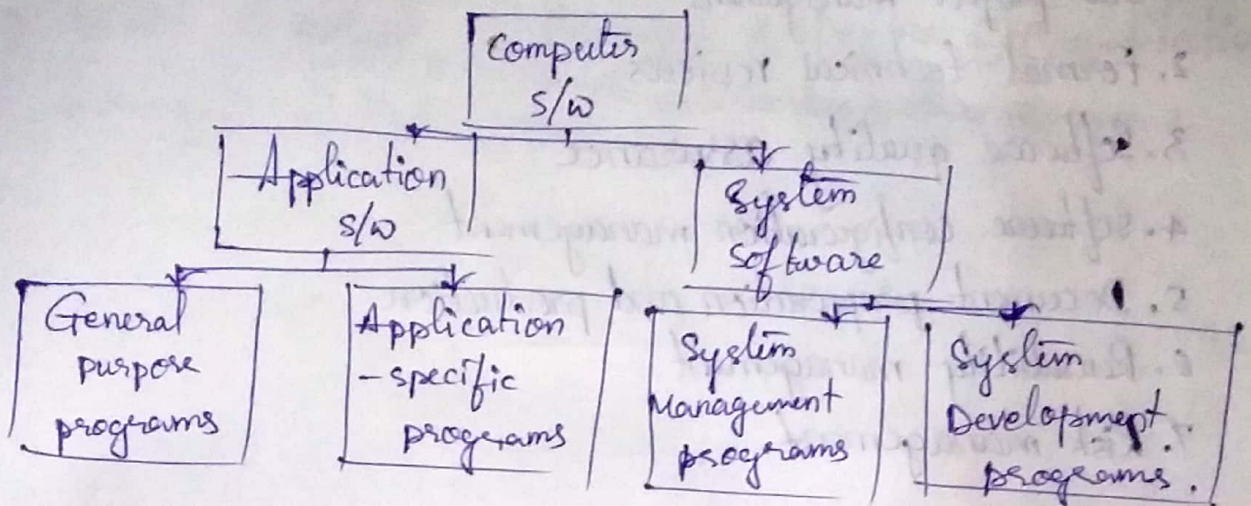 Computer
S/W
Application
S/W
System
Software
General
purpose
programs
Application
-specific
programs
System
Management
programs
System
Development
programs.